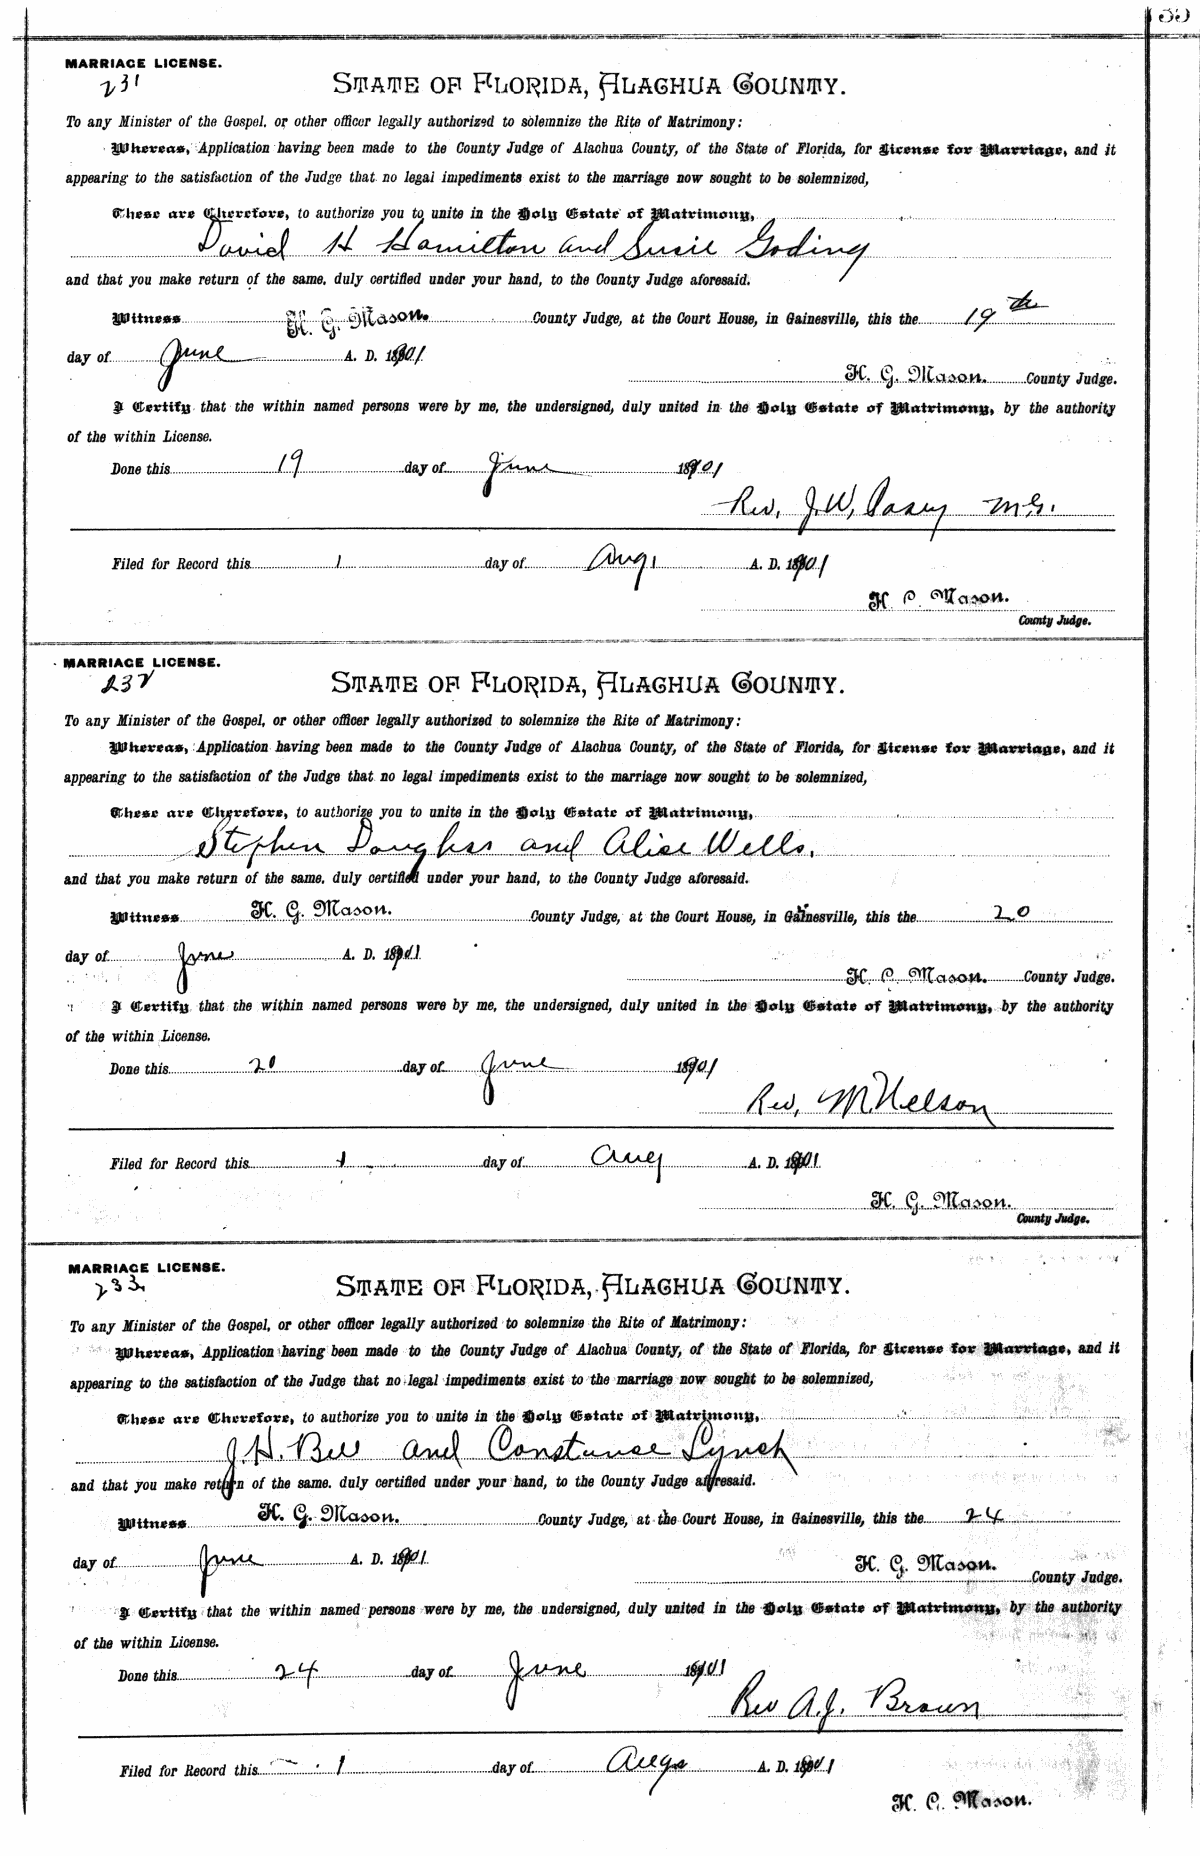 MARRIAGE LICENSE.
231
STATE OF FLORIDA, ALACHUA COUNTY.
To any Minister of the Gospel, or other officer legally authorized to solemnize the Rite of Matrimony:
Whereas, Application having been made to the County Judge of Alachua County, of the State of Florida, for License for Marriage, and it
appearing to the satisfaction of the Judge that no legal impediments exist to the marriage now sought to be solemnized,
These are Cherefore, to authorize you to unite in the Holy Estate of Matrimony,
David H Hamilton and Susie Goding
and that you make return of the same, duly certified under your hand, to the County Judge aforesaid.
Witness H. G. Mason. County Judge, at the Court House, in Gainesville, this the 19th
day of June A. D. 1901
H. G. Mason. County Judge.
I Certify that the within named persons were by me, the undersigned, duly united in the Holy Estate of Matrimony, by the authority
of the within License.
Done this 19 day of June 1901
Rev. J. W. Pasey M.G.
Filed for Record this 1 day of Aug. A. D. 1901
H. G. Mason.
County Judge.
MARRIAGE LICENSE.
232
STATE OF FLORIDA, ALACHUA COUNTY.
To any Minister of the Gospel, or other officer legally authorized to solemnize the Rite of Matrimony:
Whereas, Application having been made to the County Judge of Alachua County, of the State of Florida, for License for Marriage, and it
appearing to the satisfaction of the Judge that no legal impediments exist to the marriage now sought to be solemnized,
These are Cherefore, to authorize you to unite in the Holy Estate of Matrimony,
Stephen Douglass and Alice Wells.
and that you make return of the same, duly certified under your hand, to the County Judge aforesaid.
Witness H. G. Mason. County Judge, at the Court House, in Gainesville, this the 20
day of June A. D. 1901
H. G. Mason. County Judge.
I Certify that the within named persons were by me, the undersigned, duly united in the Holy Estate of Matrimony, by the authority
of the within License.
Done this 20 day of June 1901
Rev. M. Nelson
Filed for Record this 1 day of Aug A. D. 1901
H. G. Mason.
County Judge.
MARRIAGE LICENSE.
233
STATE OF FLORIDA, ALACHUA COUNTY.
To any Minister of the Gospel, or other officer legally authorized to solemnize the Rite of Matrimony:
Whereas, Application having been made to the County Judge of Alachua County, of the State of Florida, for License for Marriage, and it
appearing to the satisfaction of the Judge that no legal impediments exist to the marriage now sought to be solemnized,
These are Cherefore, to authorize you to unite in the Holy Estate of Matrimony,
J. H. Bell and Constance Lynch
and that you make return of the same, duly certified under your hand, to the County Judge aforesaid.
Witness H. G. Mason. County Judge, at the Court House, in Gainesville, this the 24
day of June A. D. 1901
H. G. Mason. County Judge.
I Certify that the within named persons were by me, the undersigned, duly united in the Holy Estate of Matrimony, by the authority
of the within License.
Done this 24 day of June 1901
Rev A. J. Brown
Filed for Record this 1 day of Aug A. D. 1901
H. G. Mason.